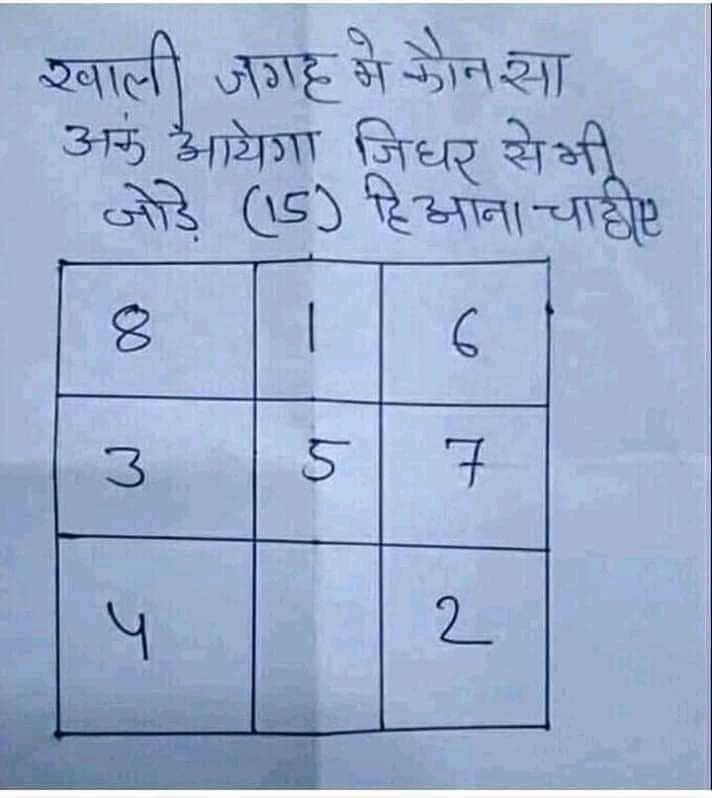 खाली जगह मे कौन सा
अकं आयेगा जिधर से भी
जोड़े (15) हि आना चाहीए
8 1 6
3 5 7
4 2